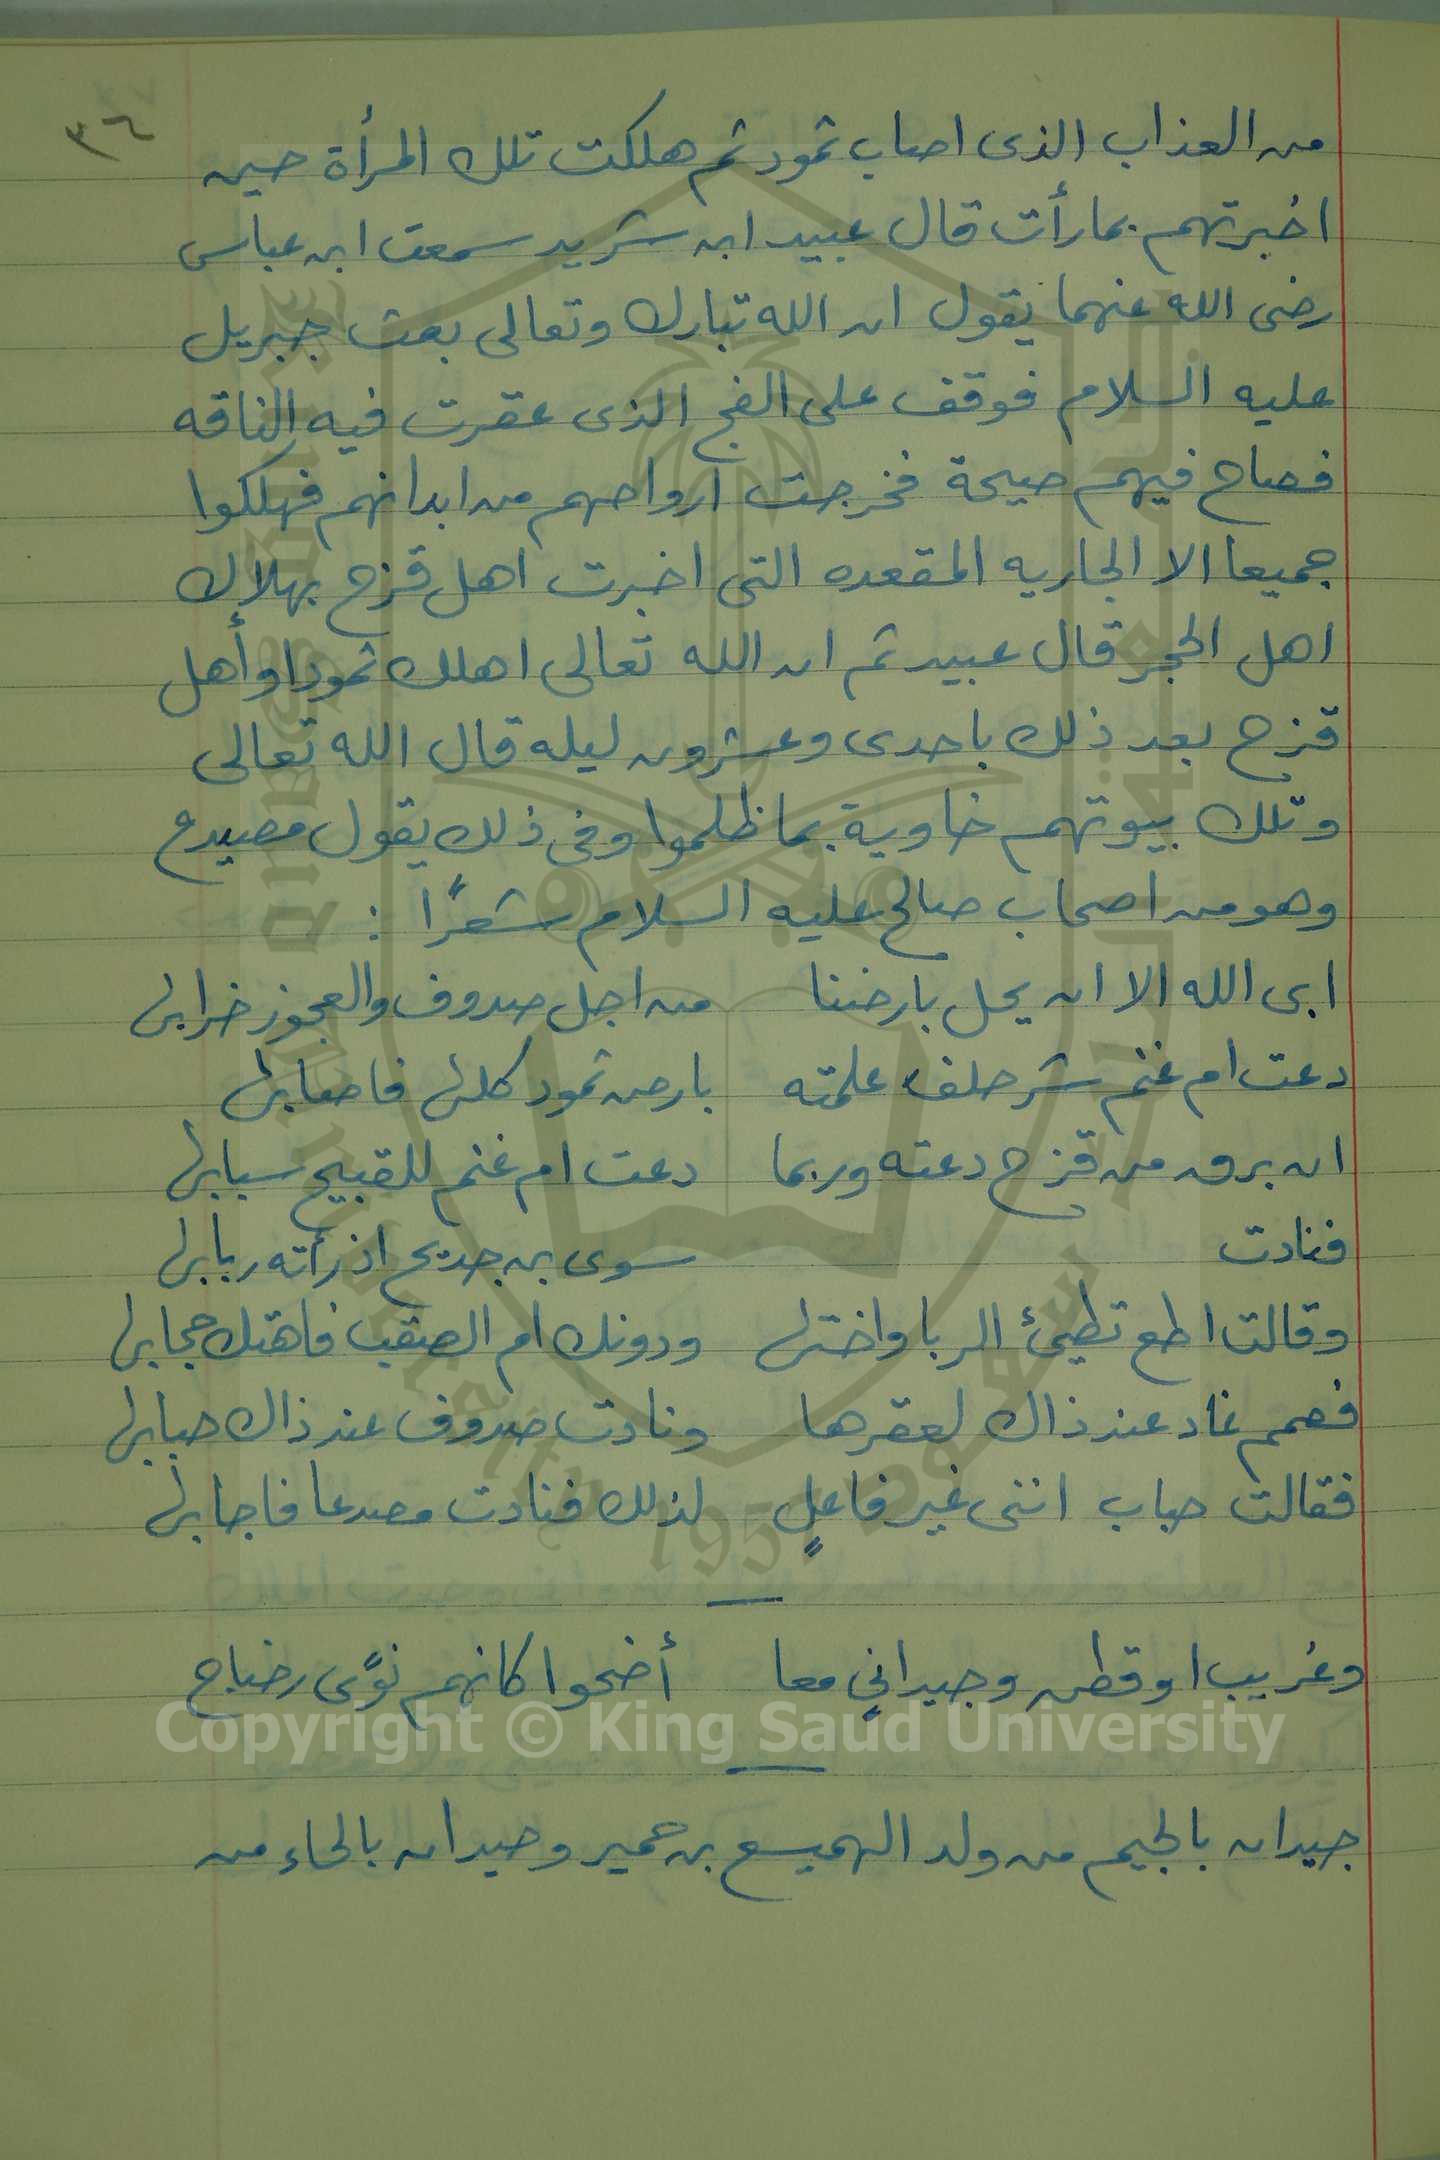 ٣٦
من العذاب الذى اصاب ثمود ثم هلكت تلك المرأة حين
اخبرتهم بما رأت قال عبيد ابن شريد سمعت ابن عباس
رضى الله عنهما يقول ان الله تبارك وتعالى بعث جبريل
عليه السلام فوقف على الفج الذى عقرت فيه الناقه
فصاح فيهم صيحة فخرجت ارواحهم من ابدانهم فهلكوا
جميعا الا الجاريه المقعده التى اخبرت اهل قزح بهلاك
اهل الحجر قال عبيد ثم ان الله تعالى اهلك ثمودا وأهل
قزح بعد ذلك باحدى وعشرون ليله قال الله تعالى
وتلك بيوتهم خاوية بما ظلموا وفى ذلك يقول مصيدع
وهو من اصحاب صالح عليه السلام شعرًا :
ابى الله الا ان يحل بارضنا من اجل صدوف والعجوز خرابها
دعت ام غنم شر حلف علمته بارض ثمود كلها فاصابها
ان برق من قزح دعته وربما دعت ام غنم للقبيح سبابها
فنادت سوى بن جديح اذ رأته ربابها
وقالت اطع تطيئ الربا واختها ودونك ام الصقب فاهتك حجابها
فصمم غاد عند ذاك لعقرها ونادت صدوف عند ذاك حبابها
فقالت حباب اننى غير فاعلٍ لذلك فنادت مصدعا فاجابها
وعُريب او قطن وجيداني معا أضحوا كانهم نوًى رضاح
جيدان بالجيم من ولد الهميسع بن حمير وحيدان بالحاء من
Copyright © King Saud University
King Saud University
1957